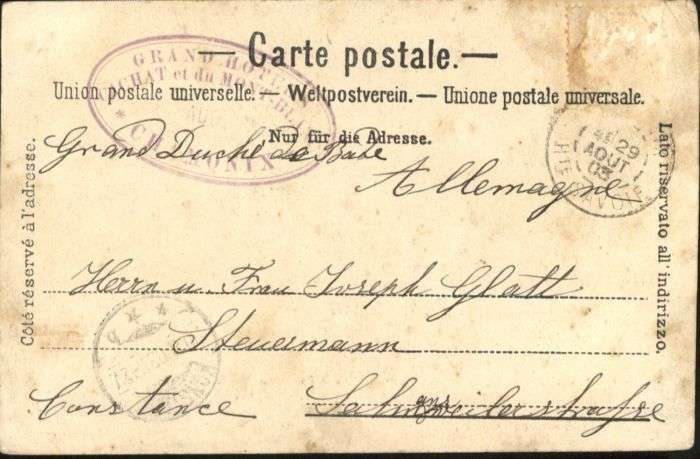 — Carte postale. —
Union postale universelle. — Weltpostverein. — Unione postale universale.
Nur für die Adresse.
Côté réservé à l'adresse.
Lato riservato all indirizzo.
GRAND HOTEL
CACHAT et du MONT-BLANC
* CHAMONIX
29
AOUT
03
HTE SAVOIE
Grand Duché de Bade
Allemagne
Herrn u. Frau Joseph Glatt
Steuermann
Constance Salmansweilerstraße